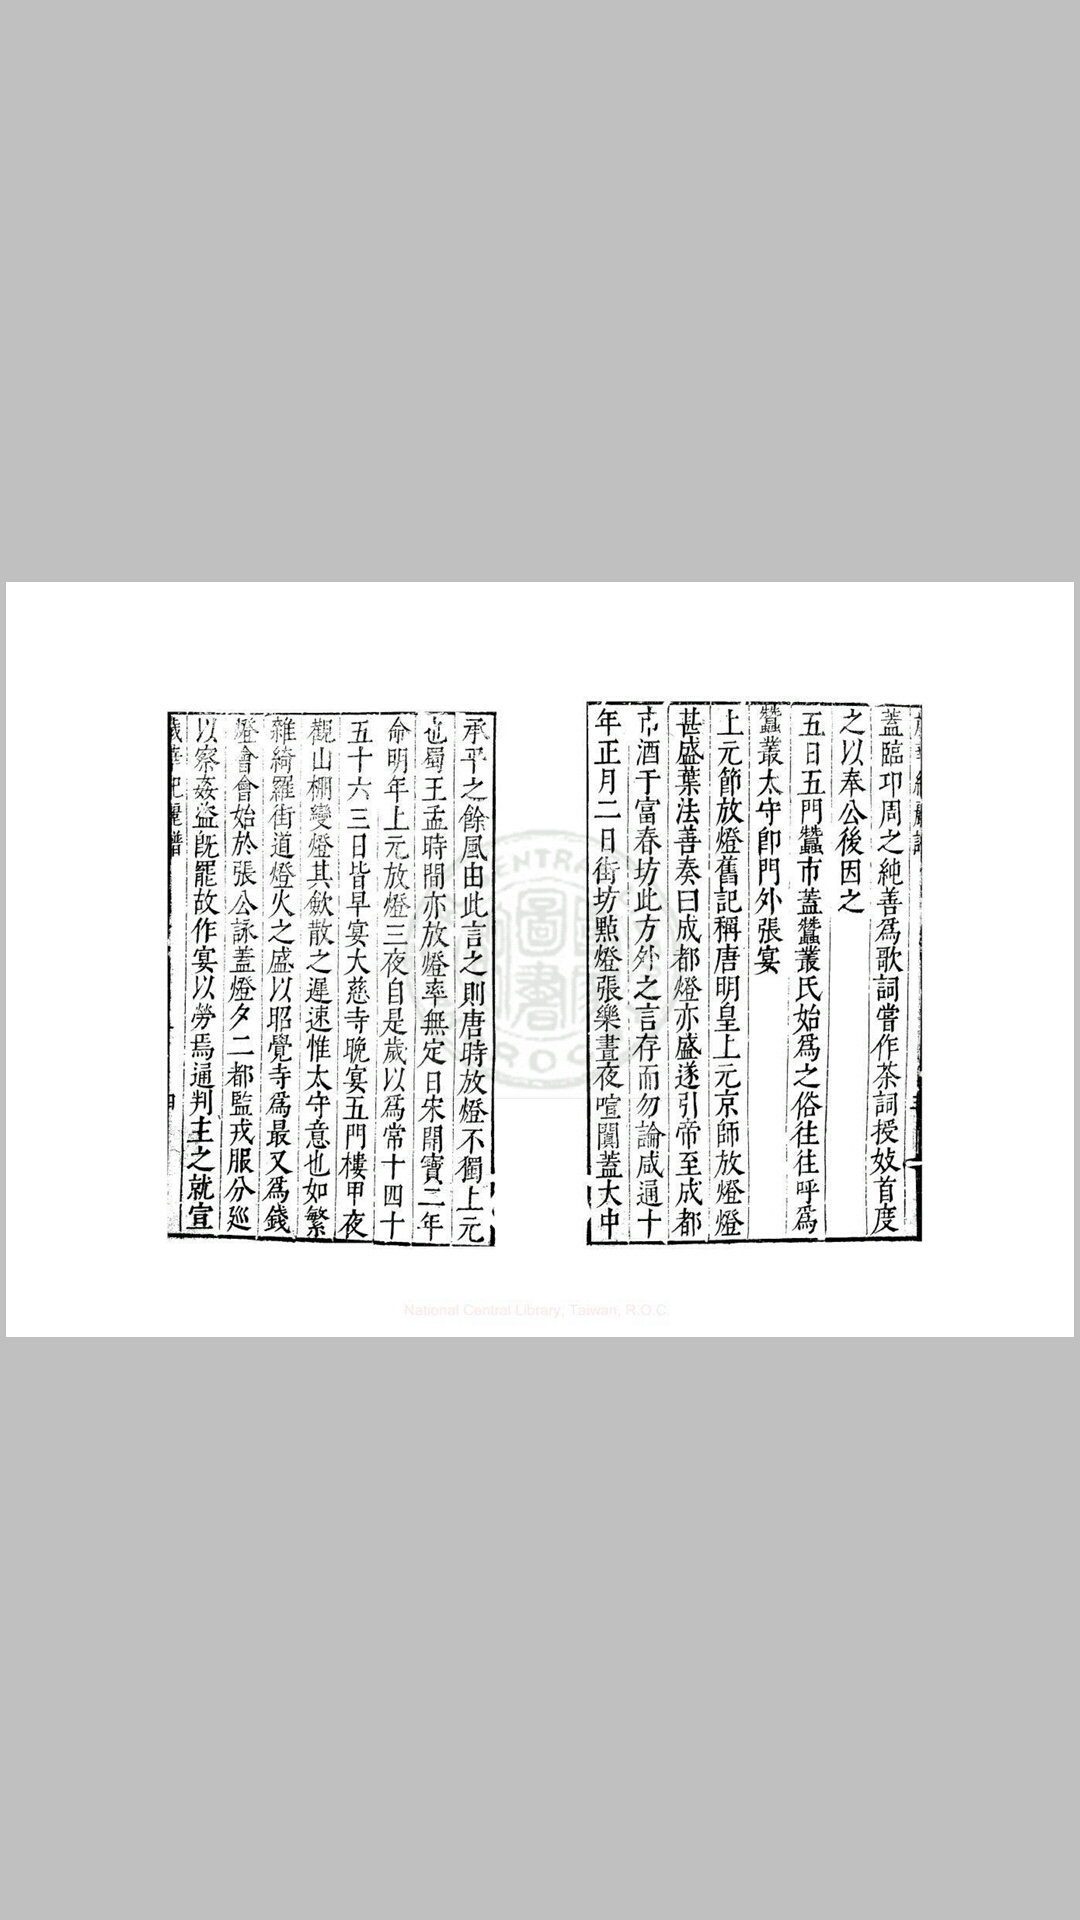 蓋臨卭周之純善爲歌詞嘗作茶詞授妓首度
之以奉公後因之
五日五門蠶市蓋蠶叢氏始爲之俗往往呼爲
蠶叢太守卽門外張宴
上元節放燈舊記稱唐明皇上元京師放燈燈
甚盛葉法善奏曰成都燈亦盛遂引帝至成都
市酒于富春坊此方外之言存而勿論咸通十
年正月二日街坊點燈張樂晝夜喧闐蓋大中
承平之餘風由此言之則唐時放燈不獨上元
也蜀王孟時間亦放燈率無定日宋開寶二年
命明年上元放燈三夜自是歲以爲常十四十
五十六三日皆早宴大慈寺晩宴五門樓甲夜
觀山棚變燈其斂散之遲速惟太守意也如繁
雜綺羅街道燈火之盛以昭覺寺爲最又爲錢
燈會會始於張公詠蓋燈夕二都監戎服分廵
以察姦盜旣罷故作宴以勞焉通判主之就宣
歲華紀麗譜
National Central Library, Taiwan, R.O.C.